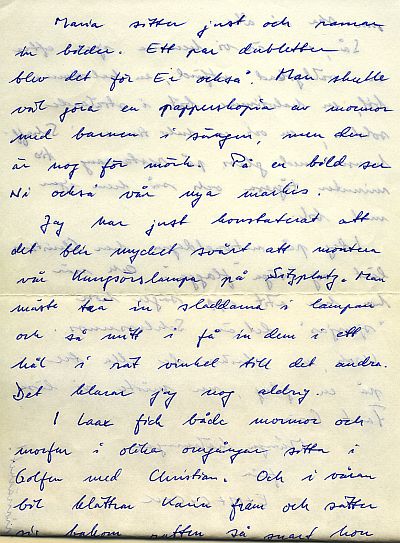 Maria sitter just och ramar
in bilder. Ett par dubletter
blev det för Er också. Man skulle
väl göra en papperskopia av mormor
med barnen i sängen, men den
är nog för mörk. På en bild ser
Ni också vår nya markis.
Jag har just konstaterat att
det blir mycket svårt att montera
vår Kungsörslampa på Sitzplatz. Man
måste trä in sladdarna i lampan
och så mitt i få in dem i ett
hål i rät vinkel till det andra.
Det klarar jag nog aldrig.
I Laax fick både mormor och
morfar i olika omgångar sitta i
Golfen med Christian. Och i våran
bil klättrar Karin fram och sätter
sig bakom ratten så snart hon